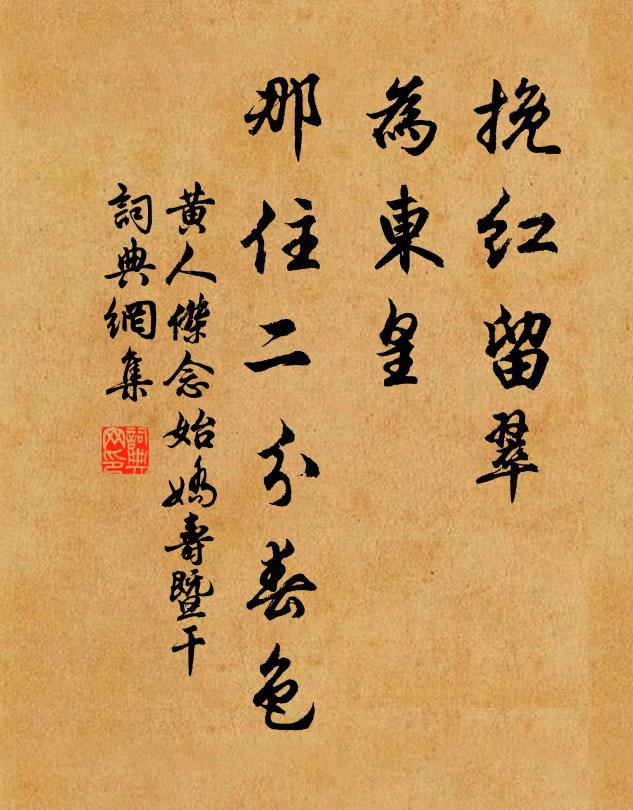 挽红留翠
為東皇
那住二分春色
黃人傑念始嬌壽暨干
詞典網集
詞典網印